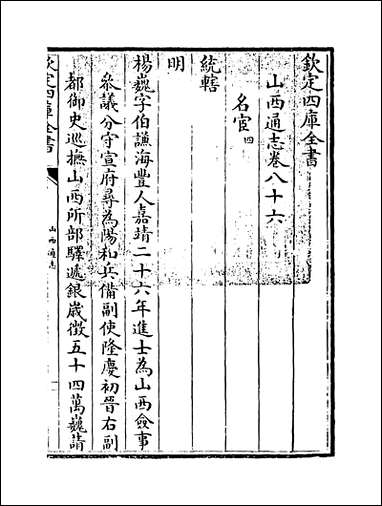 欽定四庫全書
山西通志卷八十六
名宦四
統轄
明
楊巍字伯謙海豐人嘉靖二十六年進士為山西僉事
叅議分守宣府尋為陽和兵備副使隆慶初晉右副
都御史巡撫山西所部驛遞銀歲徵五十四萬巍請
欽定四庫全書
山西通志
一